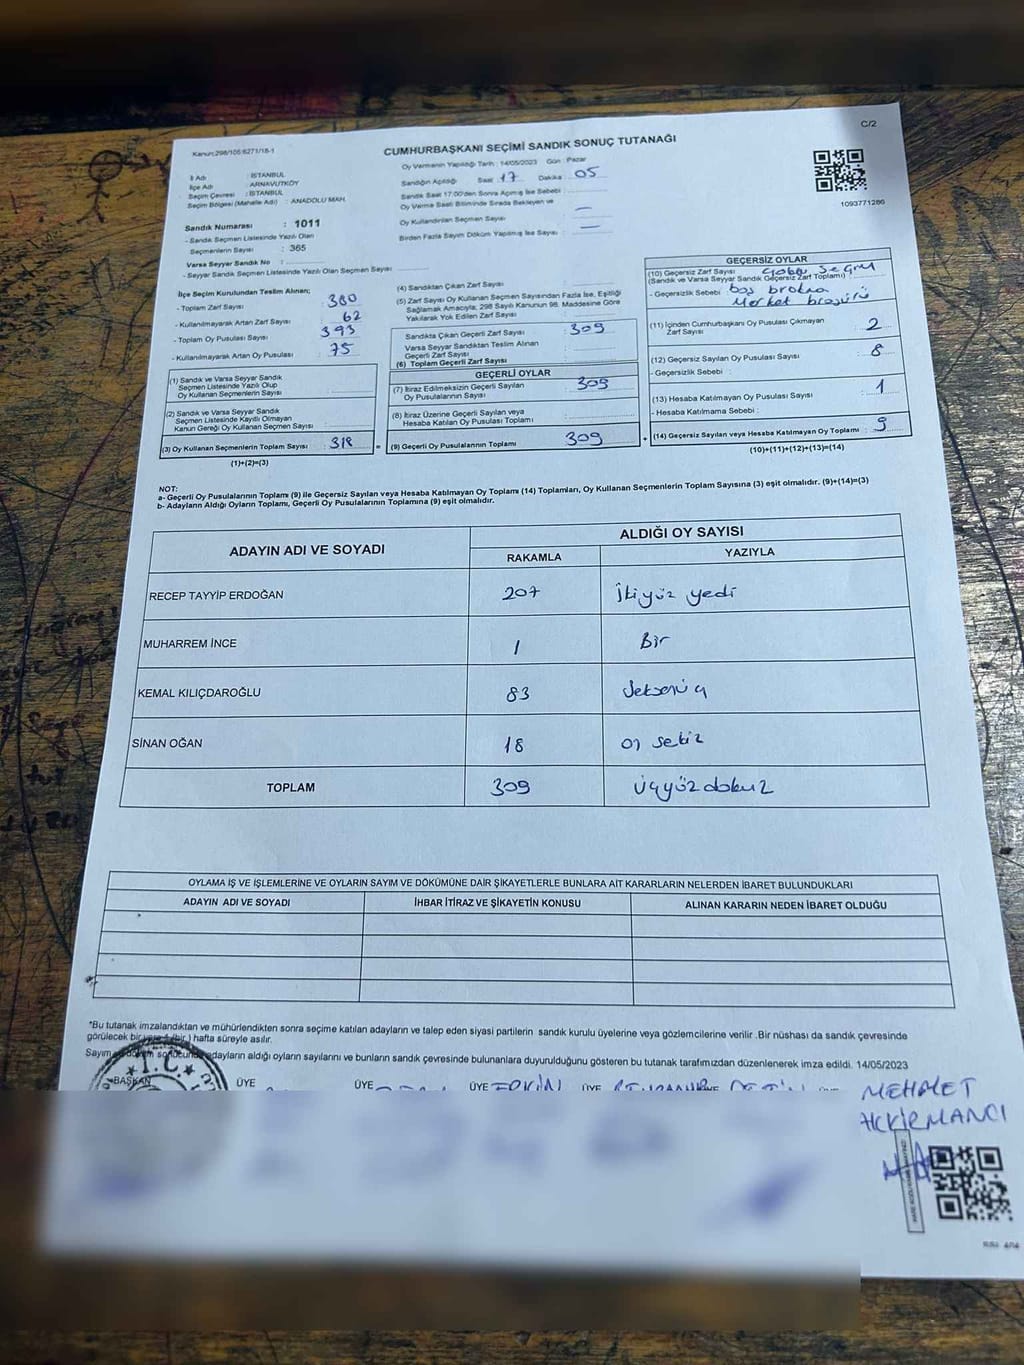 Kanun:298/105:6271/18-1
C/2
CUMHURBAŞKANI SEÇİMİ SANDIK SONUÇ TUTANAĞI
Oy Vermenin Yapıldığı Tarih : 14/05/2023 Gün : Pazar
İl Adı : İSTANBUL
İlçe Adı : ARNAVUTKÖY
Seçim Çevresi : İSTANBUL
Seçim Bölgesi (Mahalle Adı) : ANADOLU MAH.
Sandığın Açıldığı Saat 17 Dakika 05
Sandık Saat 17:00'den Sonra Açılmış İse Sebebi :
Oy Verme Saati Bitiminde Sırada Bekleyen ve
Oy Kullandırılan Seçmen Sayısı : —
Birden Fazla Sayım Döküm Yapılmış İse Sayısı : —
1093771286
Sandık Numarası : 1011
- Sandık Seçmen Listesinde Yazılı Olan
Seçmenlerin Sayısı : 365
Varsa Seyyar Sandık No :
- Seyyar Sandık Seçmen Listesinde Yazılı Olan Seçmen Sayısı
İlçe Seçim Kurulundan Teslim Alınan;
- Toplam Zarf Sayısı : 380
- Kullanılmayarak Artan Zarf Sayısı : 62
- Toplam Oy Pusulası Sayısı : 393
- Kullanılmayarak Artan Oy Pusulası : 75
(1) Sandık ve Varsa Seyyar Sandık
Seçmen Listesinde Yazılı Olup
Oy Kullanan Seçmenlerin Sayısı :
(2) Sandık ve Varsa Seyyar Sandık
Seçmen Listesinde Kayıtlı Olmayan
Kanun Gereği Oy Kullanan Seçmen Sayısı :
(3) Oy Kullanan Seçmenlerin Toplam Sayısı : 318
(1)+(2)=(3)
(4) Sandıktan Çıkan Zarf Sayısı :
(5) Zarf Sayısı Oy Kullanan Seçmen Sayısından Fazla İse, Eşitliği
Sağlamak Amacıyla; 298 Sayılı Kanunun 98. Maddesine Göre
Yakılarak Yok Edilen Zarf Sayısı :
Sandıkta Çıkan Geçerli Zarf Sayısı : 309
Varsa Seyyar Sandıktan Teslim Alınan
Geçerli Zarf Sayısı :
(6) Toplam Geçerli Zarf Sayısı
GEÇERLİ OYLAR
(7) İtiraz Edilmeksizin Geçerli Sayılan
Oy Pusulalarının Sayısı : 309
(8) İtiraz Üzerine Geçerli Sayılan veya
Hesaba Katılan Oy Pusulası Toplamı :
= (9) Geçerli Oy Pusulalarının Toplamı 309
GEÇERSİZ OYLAR
(10) Geçersiz Zarf Sayısı
(Sandık ve Varsa Seyyar Sandık Geçersiz Zarf Toplamı)
- Geçersizlik Sebebi : boş
(11) İçinden Cumhurbaşkanı Oy Pusulası Çıkmayan
Zarf Sayısı : 2
(12) Geçersiz Sayılan Oy Pusulası Sayısı : 8
- Geçersizlik Sebebi :
(13) Hesaba Katılmayan Oy Pusulası Sayısı : 1
- Hesaba Katılmama Sebebi :
+ (14) Geçersiz Sayılan veya Hesaba Katılmayan Oy Toplamı : 9
(10)+(11)+(12)+(13)=(14)
NOT:
a- Geçerli Oy Pusulalarının Toplamı (9) ile Geçersiz Sayılan veya Hesaba Katılmayan Oy Toplamı (14) Toplamları, Oy Kullanan Seçmenlerin Toplam Sayısına (3) eşit olmalıdır. (9)+(14)=(3)
b- Adayların Aldığı Oyların Toplamı, Geçerli Oy Pusulalarının Toplamına (9) eşit olmalıdır.
ADAYIN ADI VE SOYADI
ALDIĞI OY SAYISI
RAKAMLA YAZIYLA
RECEP TAYYİP ERDOĞAN 207 İkiyüz yedi
MUHARREM İNCE 1 Bir
KEMAL KILIÇDAROĞLU 83 Seksenüç
SİNAN OĞAN 18 on sekiz
TOPLAM 309 Üçyüz dokuz
OYLAMA İŞ VE İŞLEMLERİNE VE OYLARIN SAYIM VE DÖKÜMÜNE DAİR ŞİKAYETLERLE BUNLARA AİT KARARLARIN NELERDEN İBARET BULUNDUKLARI
ADAYIN ADI VE SOYADI İHBAR İTİRAZ VE ŞİKAYETİN KONUSU ALINAN KARARIN NEDEN İBARET OLDUĞU
*Bu tutanak imzalandıktan ve mühürlendikten sonra seçime katılan adayların ve talep eden siyasi partilerin sandık kurulu üyelerine veya gözlemcilerine verilir. Bir nüshası da sandık çevresinde
görülecek bir yere 1 (bir) hafta süreyle asılır.
Sayım ve döküm sonucunda adayların aldığı oyların sayılarını ve bunların sandık çevresinde bulunanlara duyurulduğunu gösteren bu tutanak tarafımızdan düzenlenerek imza edildi. 14/05/2023
T.C.
*BAŞKAN ÜYE ÜYE ÜYE ÜYE
MEHMET
AKKİRMANCI